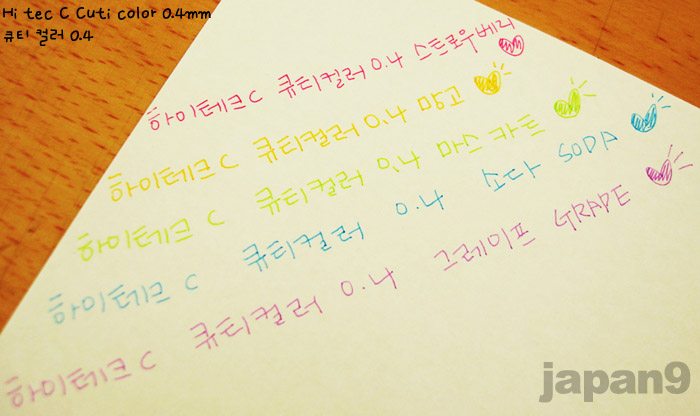 Hi tec C Cuti color 0.4mm
큐티 컬러 0.4
하이테크 C 큐티컬러 0.4 스트로우베리
하이테크 C 큐티컬러 0.4 망고
하이테크 C 큐티컬러 0.4 마스카트
하이테크 C 큐티컬러 0.4 소다 SODA
하이테크 C 큐티컬러 0.4 그레이프 GRAPE
japan9